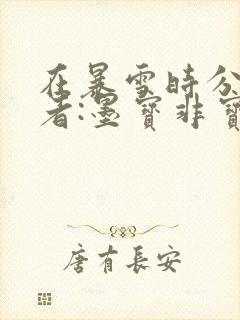 在暴雪时分
者:墨寶非寶
唐有長安